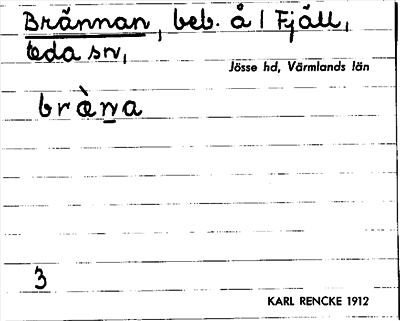 Brännan, beb. å 1 Fjäll,
Eda sn,
Jösse hd, Värmlands län
bræ̀na
3
KARL RENCKE 1912